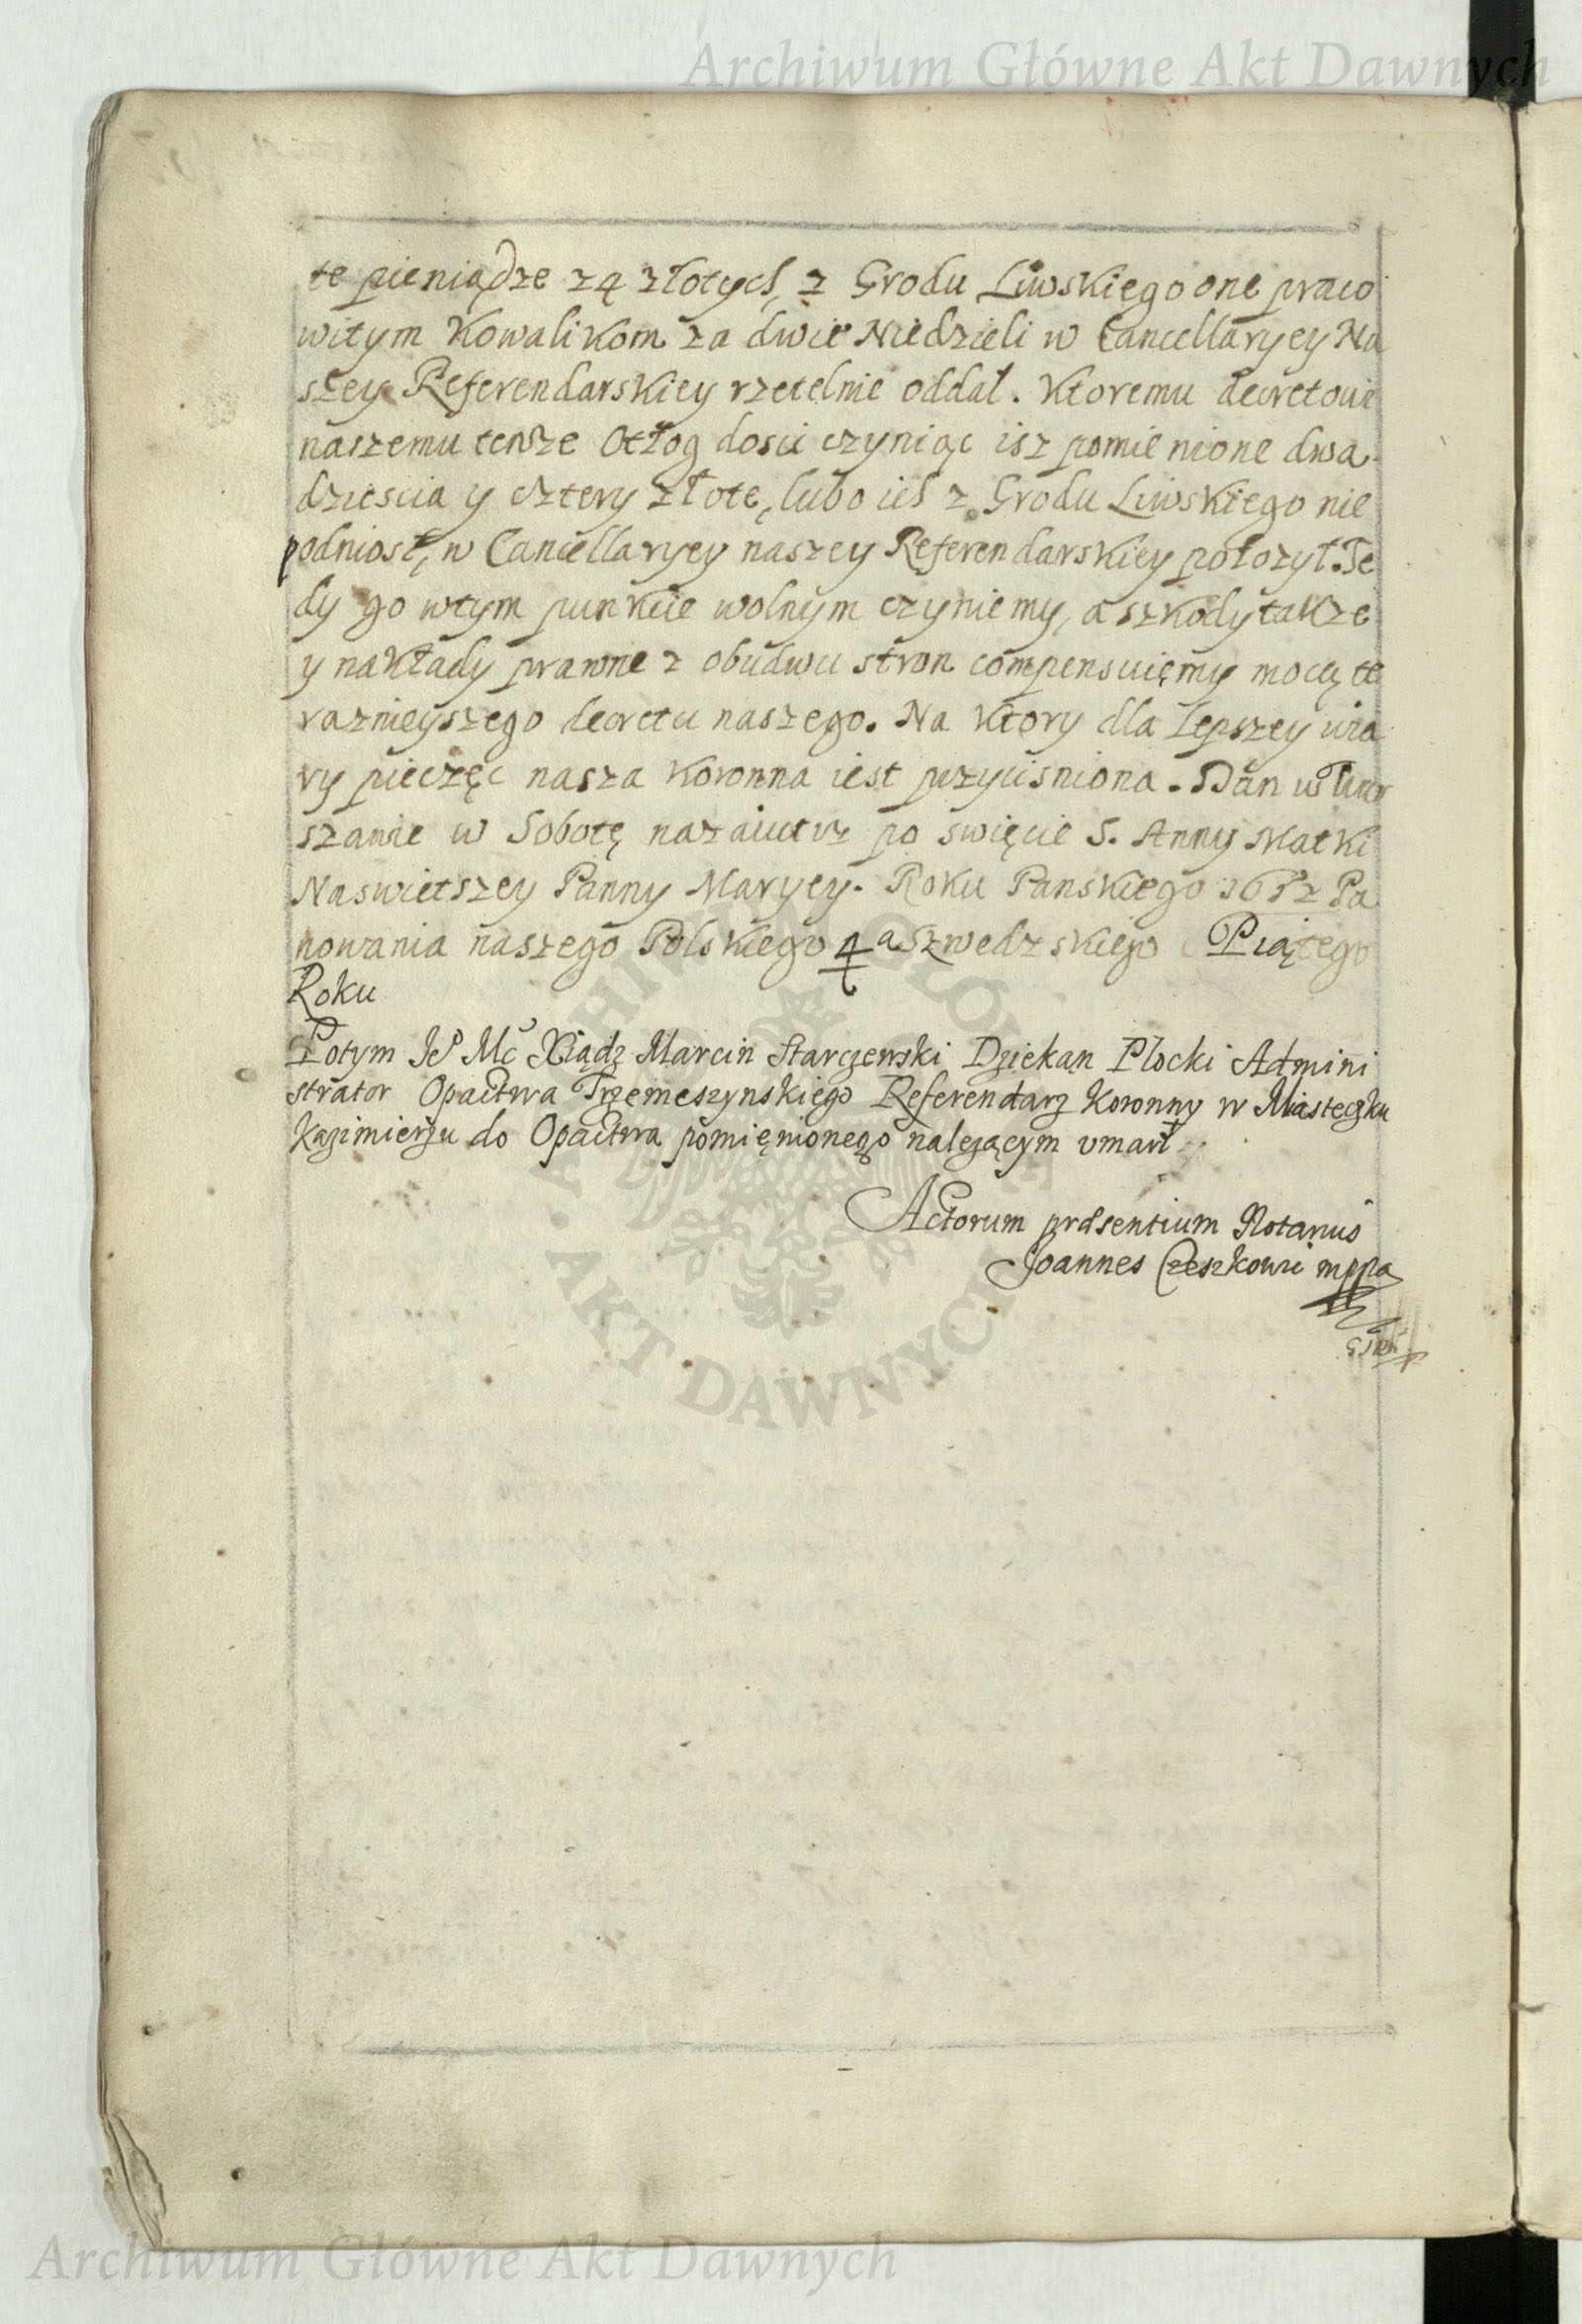 Archiwum Główne Akt Dawnych
te pieniądze 24 złotych z Grodu Liwskiego one praco
witym Kowalikom za dwie Niedzieli w Cancellaryey Na
szey Referendarskiey rzetelnie oddał. Ktoremu decretowi
naszemu tenże Otłog dosci czyniąc isz pomienione dwa
dziescia y cztery złote, lubo ich z Grodu Liwskiego nie
podniosł, w Cancellaryey naszey Referendarskiey położył. Te
dy go wtym punkcie wolnym czyniemy, a szkody takze
y nakłady prawne z obudwu stron compensuięmy mocą te
raznieyszego decretu naszego. Na Ktory dla lepszey wia
ry pieczęc nasza Koronna iest przycisniona. Dan w War
szawie w Sobotę nazaiutrz po swięcie S. Anny Matki
Naswietszey Panny Maryey. Roku Panskiego 1652 Pa
nowania naszego Polskiego 4 a Szwedzskiego Piątego
Roku
Potym Je° Mć Xiądz Marcin Starczewski Dziekan Plocki Admini
strator Opactwa Trzemeszynskiego Referendarz Koronny w Miasteczku
Kazimierzu do Opactwa pomięnionego należącym umarł
Actorum præsentium Notarius
Joannes Czeszkowi mppa
ARCHIWUM GŁÓWNE AKT DAWNYCH
Archiwum Główne Akt Dawnych